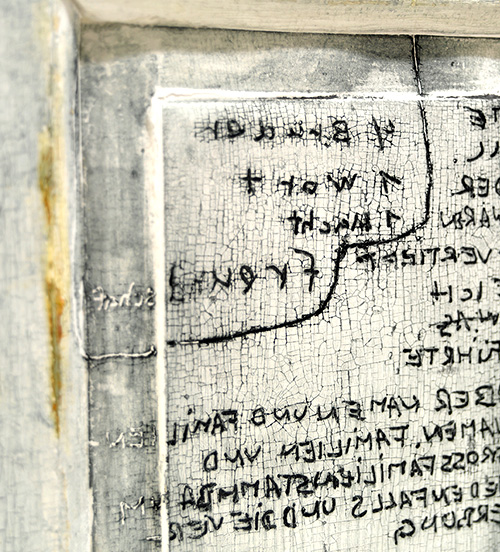 Bruder
1 wort
1 Macht
Freund
schaf
DER
VERTIEF
EICH
WAS
FÜHRTE
ÜBER NAMEN UND FAMIL
NAMEN. FAMILIEN UND
GROSSFAMILIENSTAMMBA
JEDENFALLS UND DIE VER
ERBUNG